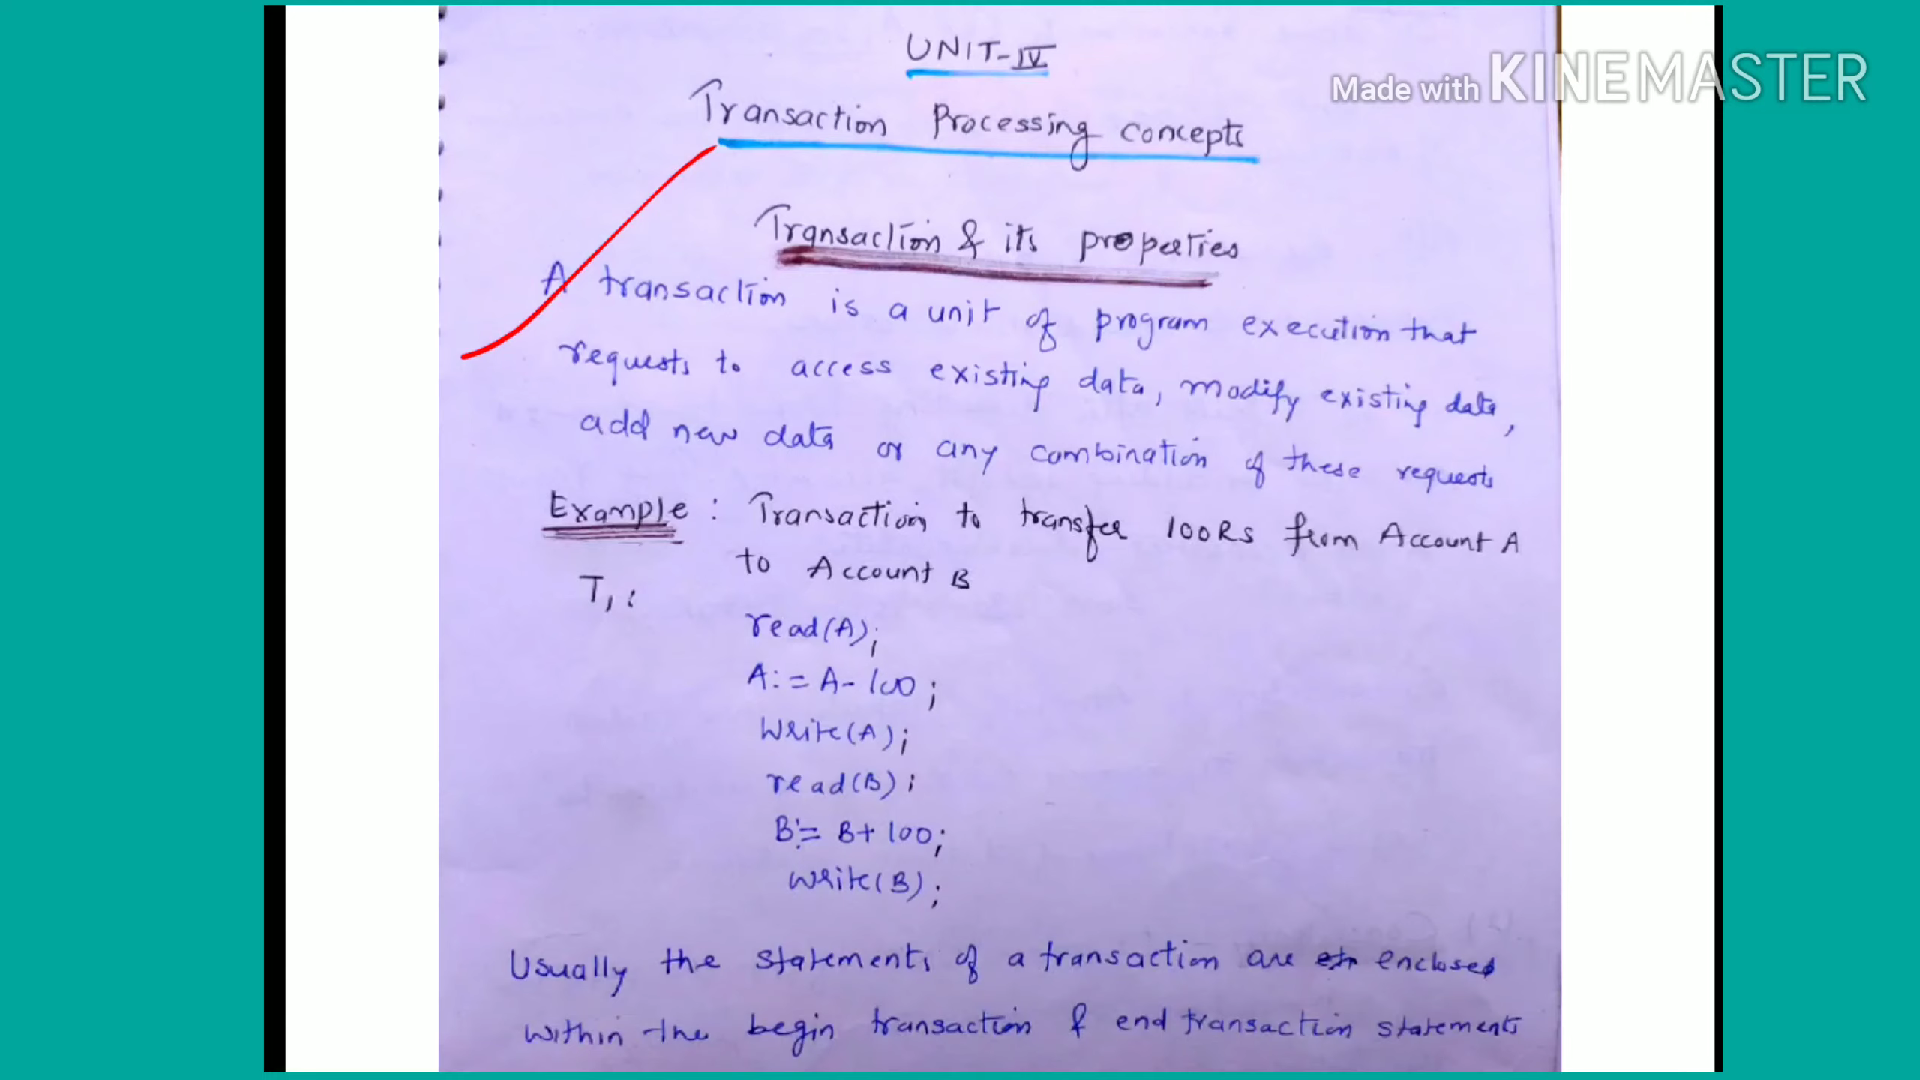 UNIT-IV
Made with KINEMASTER
Transaction Processing concepts
Transaction & its properties
A transaction is a unit of program execution that
requests to access existing data, modify existing data,
add new data or any combination of these requests
Example : Transaction to transfer 100Rs from Account A
to Account B
T1:
read(A);
A:= A- 100;
Write(A);
read(B);
B:= B+ 100;
Write(B);
Usually the statements of a transaction are enclosed
within the begin transaction & end transaction statements